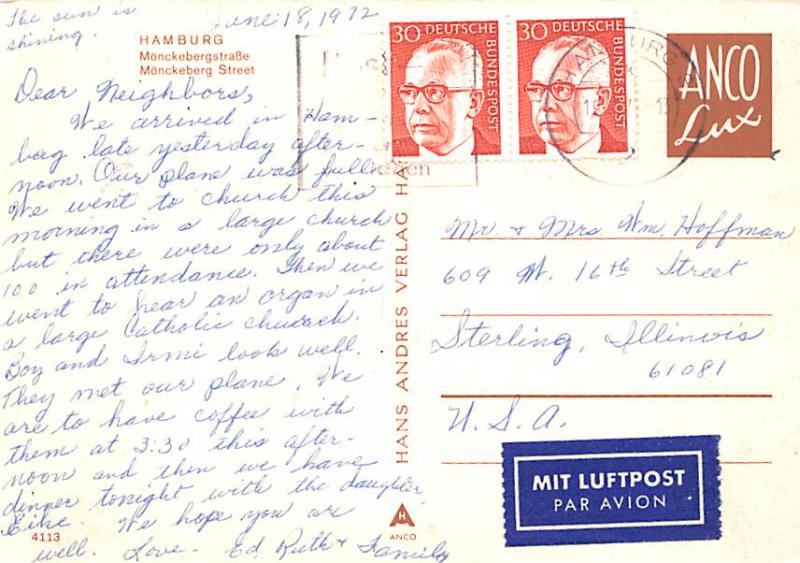 The sun is
shining.
June 18, 1972
HAMBURG
Mönckebergstraße
Mönckeberg Street
Dear Neighbors,
We arrived in Ham-
burg late yesterday after-
noon. Our plane was full.
We went to church this
morning in a large church
but there were only about
100 in attendance. Then we
went to hear an organ in
a large Catholic church.
Boy and Irmi look well.
They met our plane. We
are to have coffee with
them at 3:30 this after-
noon and then we have
dinner tonight with the daughter
Eike. We hope you are
well. Love - Ed, Ruth + Family
4113
HANS ANDRES VERLAG
ANCO
30 DEUTSCHE BUNDESPOST
30 DEUTSCHE BUNDESPOST
HAMBURG
ANCO
Lux
Mr. + Mrs Wm. Hoffman
609 W. 16th Street
Sterling, Illinois
61081
U.S.A.
MIT LUFTPOST
PAR AVION